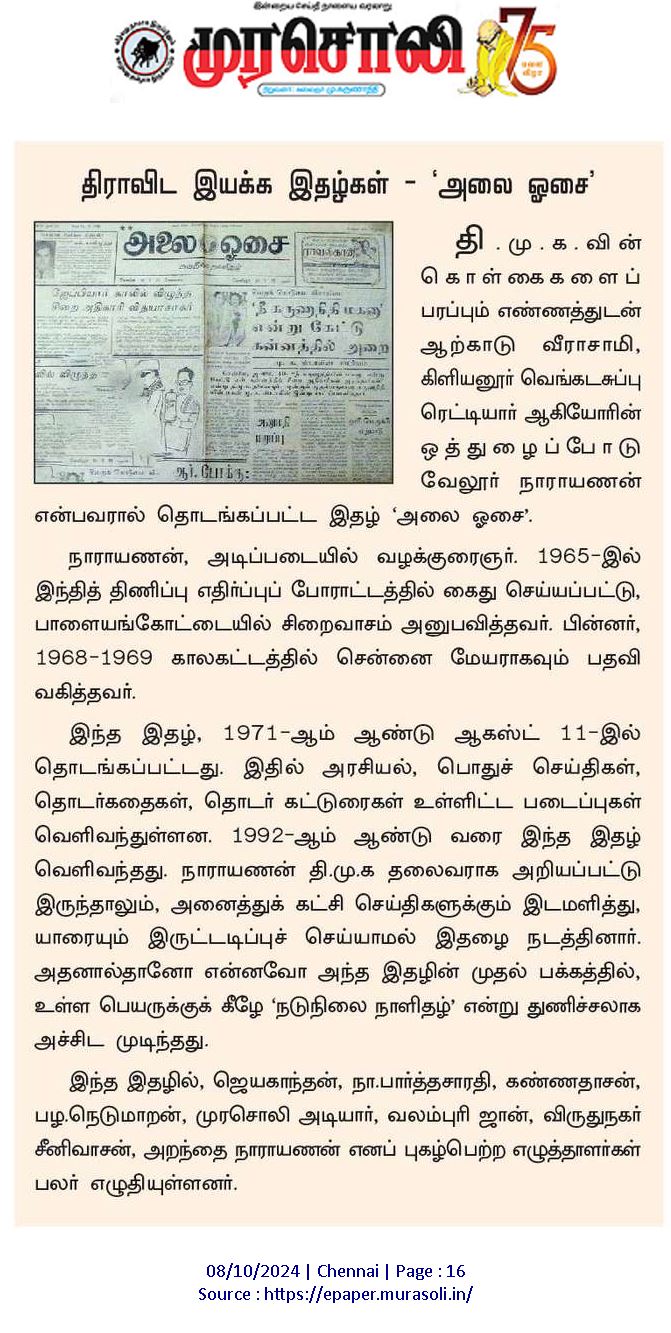 இன்றைய செய்தி நாளைய வரலாறு
முரசொலி
75
பவள விழா
நிறுவனர்: கலைஞர் மு.கருணாநிதி
திராவிட இயக்க இதழ்கள் - ‘அலை ஓசை’
அலை ஓசை
ஜேப்பியார் காலில் விழுந்த
சிறை அதிகாரி வித்யாசாகர்
‘நீ கருணாநிதி மகனா’
என்று கேட்டு
கன்னத்தில் அறை
தி.மு.க.வின்
கொள்கைகளைப்
பரப்பும் எண்ணத்துடன்
ஆற்காடு வீராசாமி,
கிளியனூர் வெங்கடசுப்பு
ரெட்டியார் ஆகியோரின்
ஒத்துழைப்போடு
வேலூர் நாராயணன்
என்பவரால் தொடங்கப்பட்ட இதழ் ‘அலை ஓசை’.
நாராயணன், அடிப்படையில் வழக்குரைஞர். 1965-இல்
இந்தித் திணிப்பு எதிர்ப்புப் போராட்டத்தில் கைது செய்யப்பட்டு,
பாளையங்கோட்டையில் சிறைவாசம் அனுபவித்தவர். பின்னர்,
1968-1969 காலகட்டத்தில் சென்னை மேயராகவும் பதவி
வகித்தவர்.
இந்த இதழ், 1971-ஆம் ஆண்டு ஆகஸ்ட் 11-இல்
தொடங்கப்பட்டது. இதில் அரசியல், பொதுச் செய்திகள்,
தொடர்கதைகள், தொடர் கட்டுரைகள் உள்ளிட்ட படைப்புகள்
வெளிவந்துள்ளன. 1992-ஆம் ஆண்டு வரை இந்த இதழ்
வெளிவந்தது. நாராயணன் தி.மு.க தலைவராக அறியப்பட்டு
இருந்தாலும், அனைத்துக் கட்சி செய்திகளுக்கும் இடமளித்து,
யாரையும் இருட்டடிப்புச் செய்யாமல் இதழை நடத்தினார்.
அதனால்தானோ என்னவோ அந்த இதழின் முதல் பக்கத்தில்,
உள்ள பெயருக்குக் கீழே ‘நடுநிலை நாளிதழ்’ என்று துணிச்சலாக
அச்சிட முடிந்தது.
இந்த இதழில், ஜெயகாந்தன், நா.பார்த்தசாரதி, கண்ணதாசன்,
பழ.நெடுமாறன், முரசொலி அடியார், வலம்புரி ஜான், விருதுநகர்
சீனிவாசன், அறந்தை நாராயணன் எனப் புகழ்பெற்ற எழுத்தாளர்கள்
பலர் எழுதியுள்ளனர்.
08/10/2024 | Chennai | Page : 16
Source : https://epaper.murasoli.in/